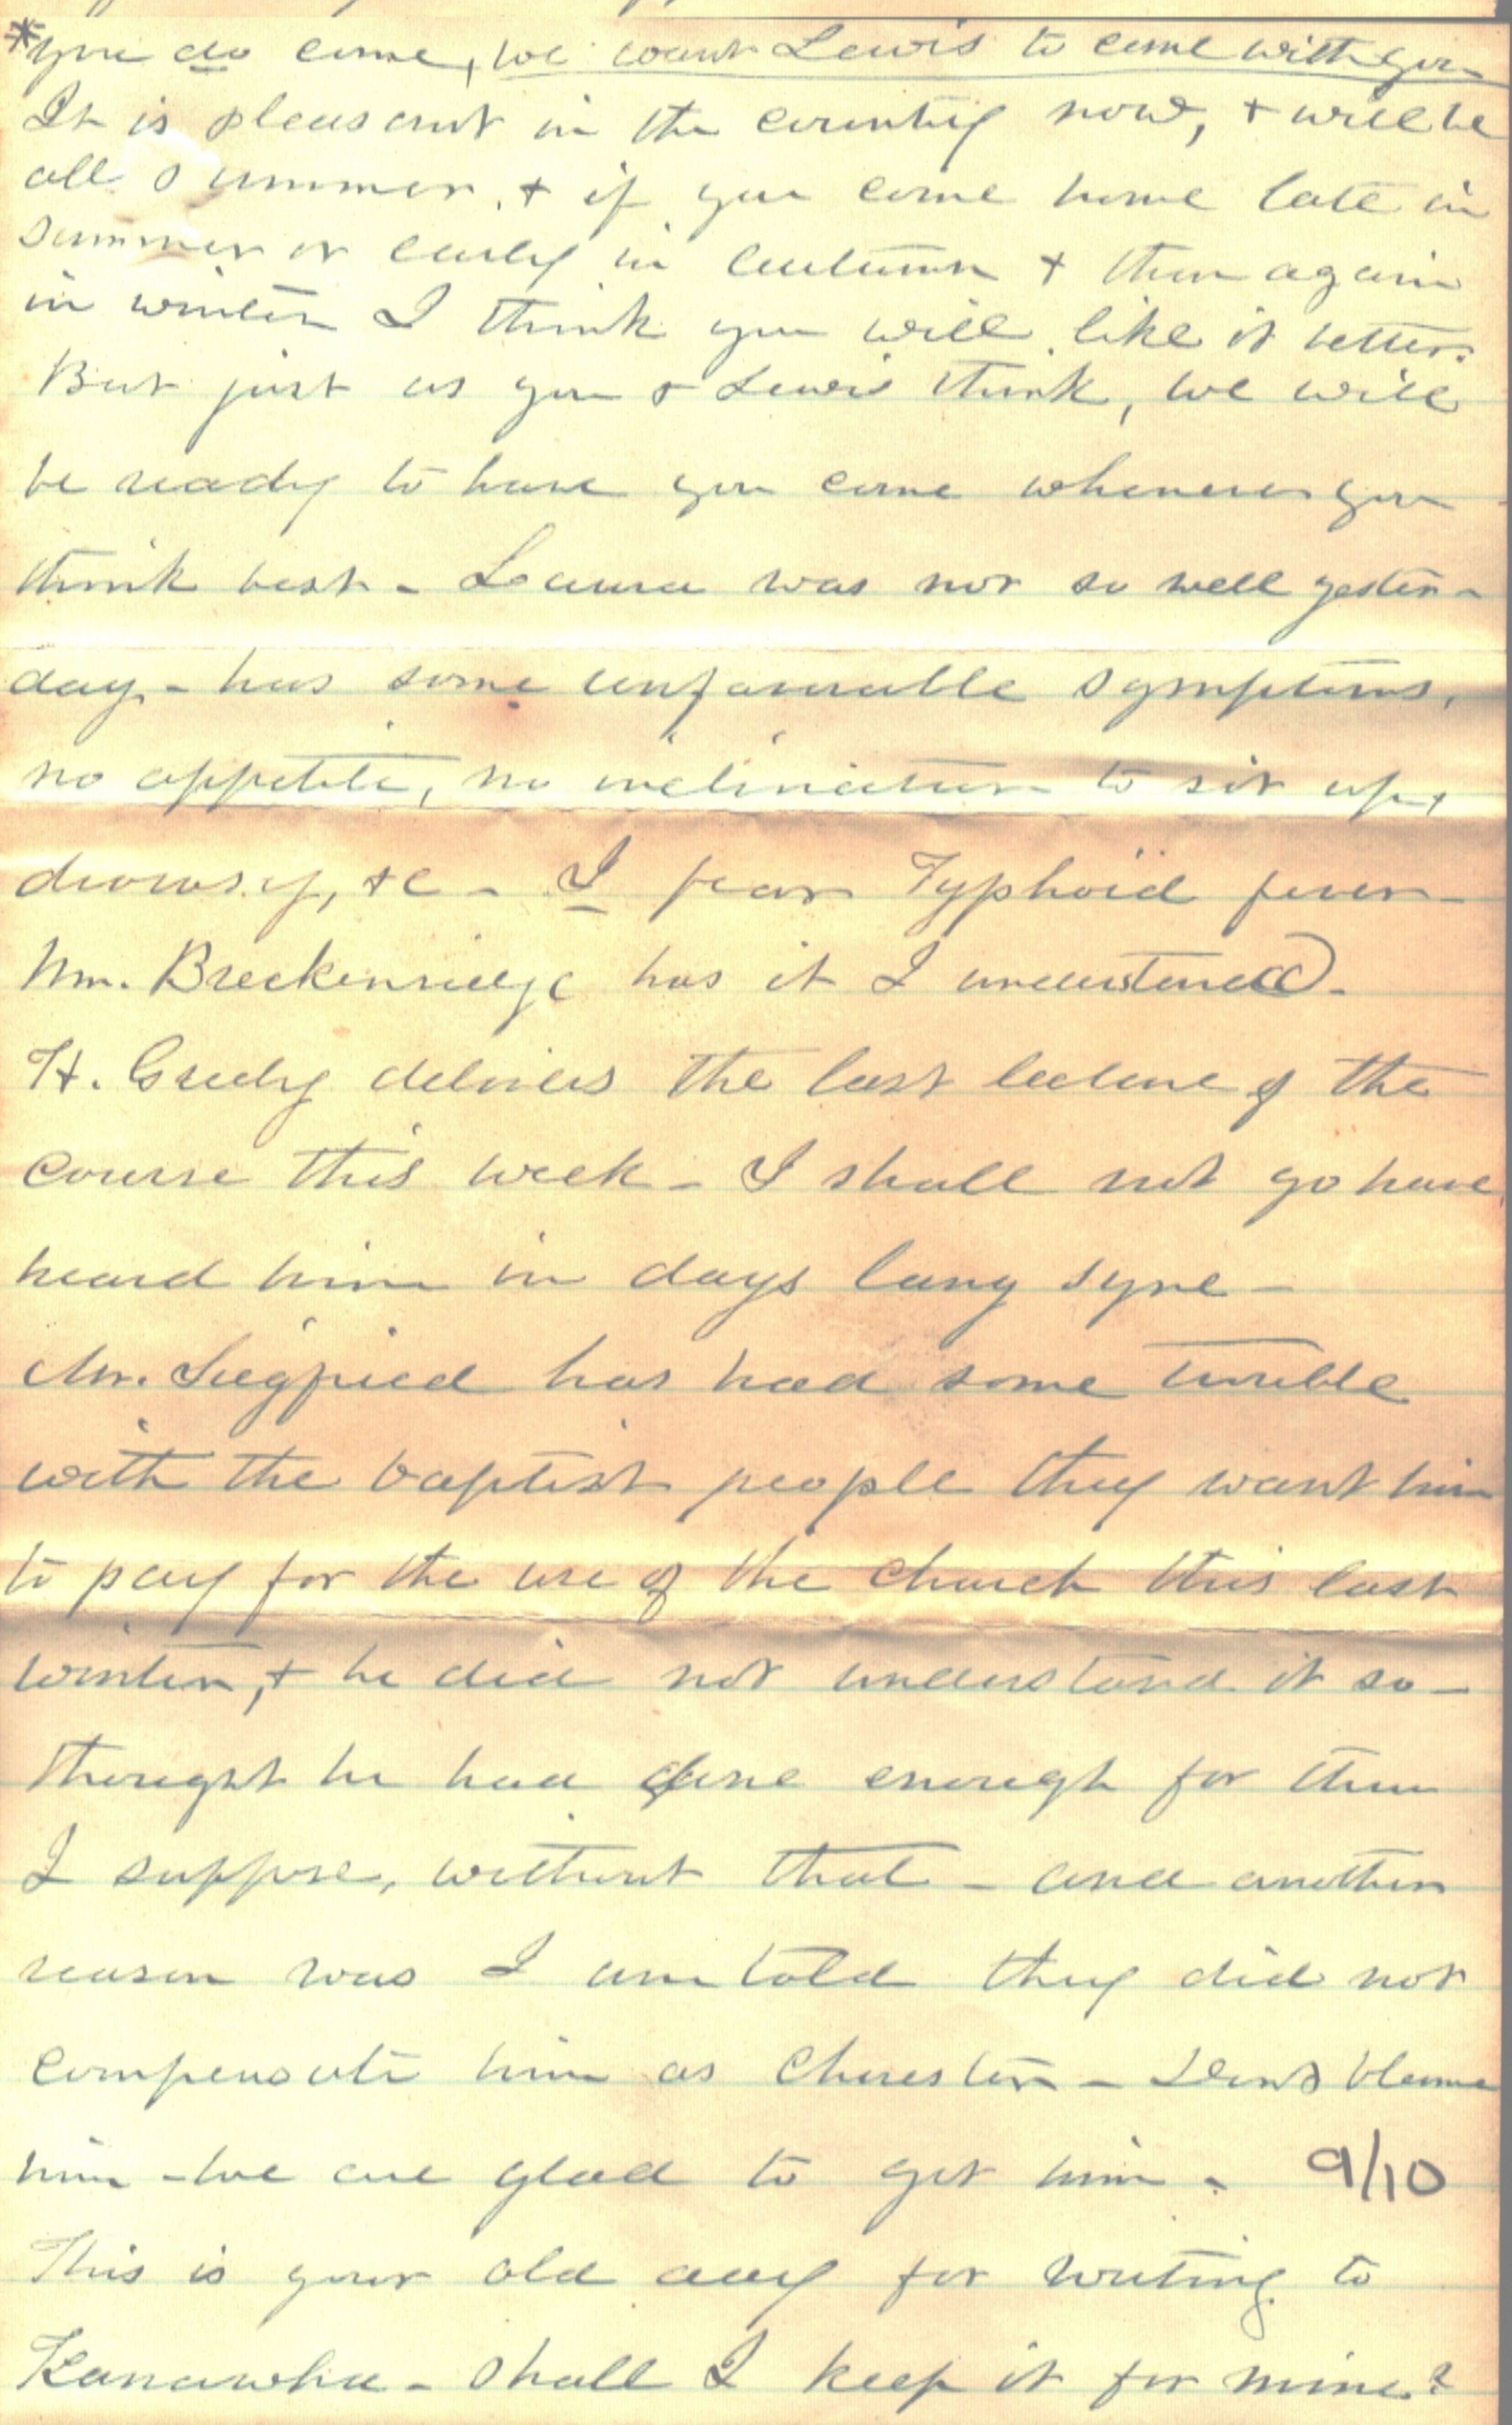 *you do come, we want Lewis to come with you
It is pleasant in the country now, + will be
all summer, + if you come home late in
summer or early in autumn + then again
in winter I think you will like it better.
But just as you & Lewis think, we will
be ready to have you come whenever you
think best - Laura was not so well yester-
day - has some unfavorable symptoms,
no appetite, no inclination to sit up,
drowsy, &c - I fear Typhoid fever -
Wm. Breckenridge has it I understand -
H. Greely delivers the last lecture of the
course this week - I shall not go have
heard him in days lang syne -
Mr. Siegfried has had some trouble
with the baptist people they want him
to pay for the use of the church this last
winter, + he did not understand it so -
thought he had done enough for them
I suppose, without that - and another
reason was I am told they did not
compensate him as Chorester - Dont blame
him - we are glad to get him - 9/10
This is your old day for writing to
Kanawha - shall I keep it for mine?